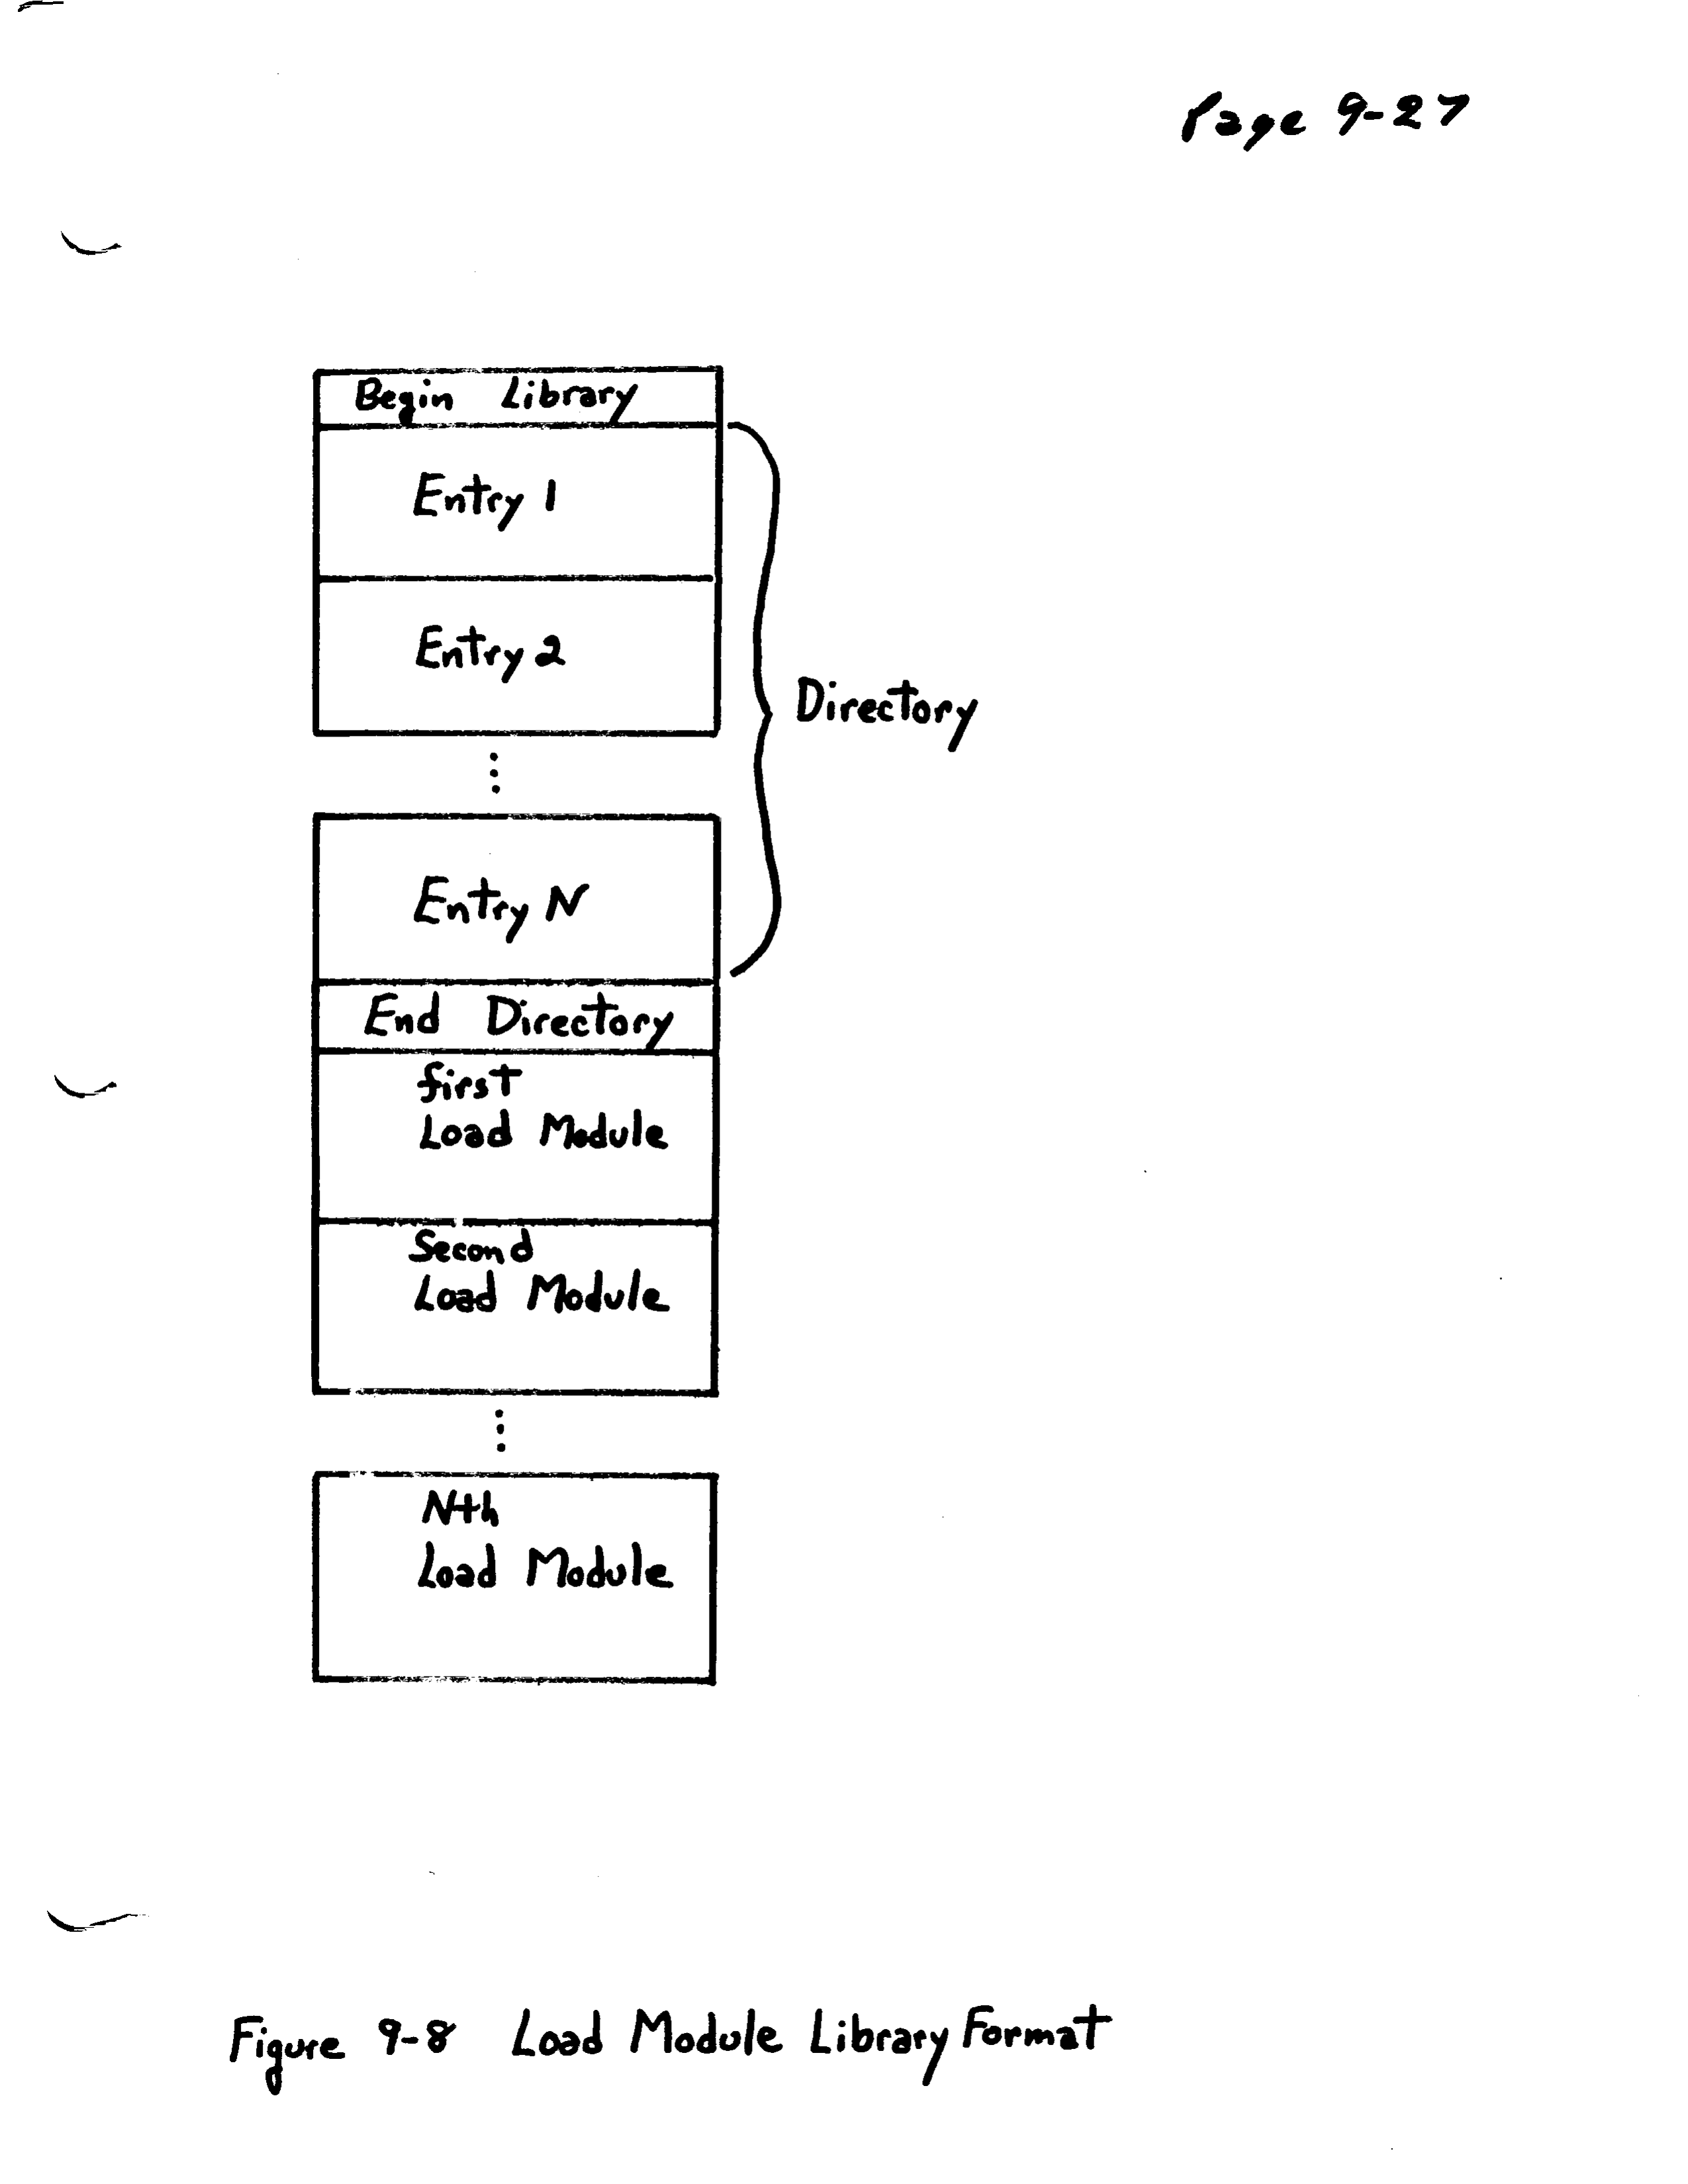 Page 9-27
Begin Library
Entry 1
Entry 2
Directory
Entry N
End Directory
first
Load Module
Second
Load Module
Nth
Load Module
Figure 9-8 Load Module Library Format